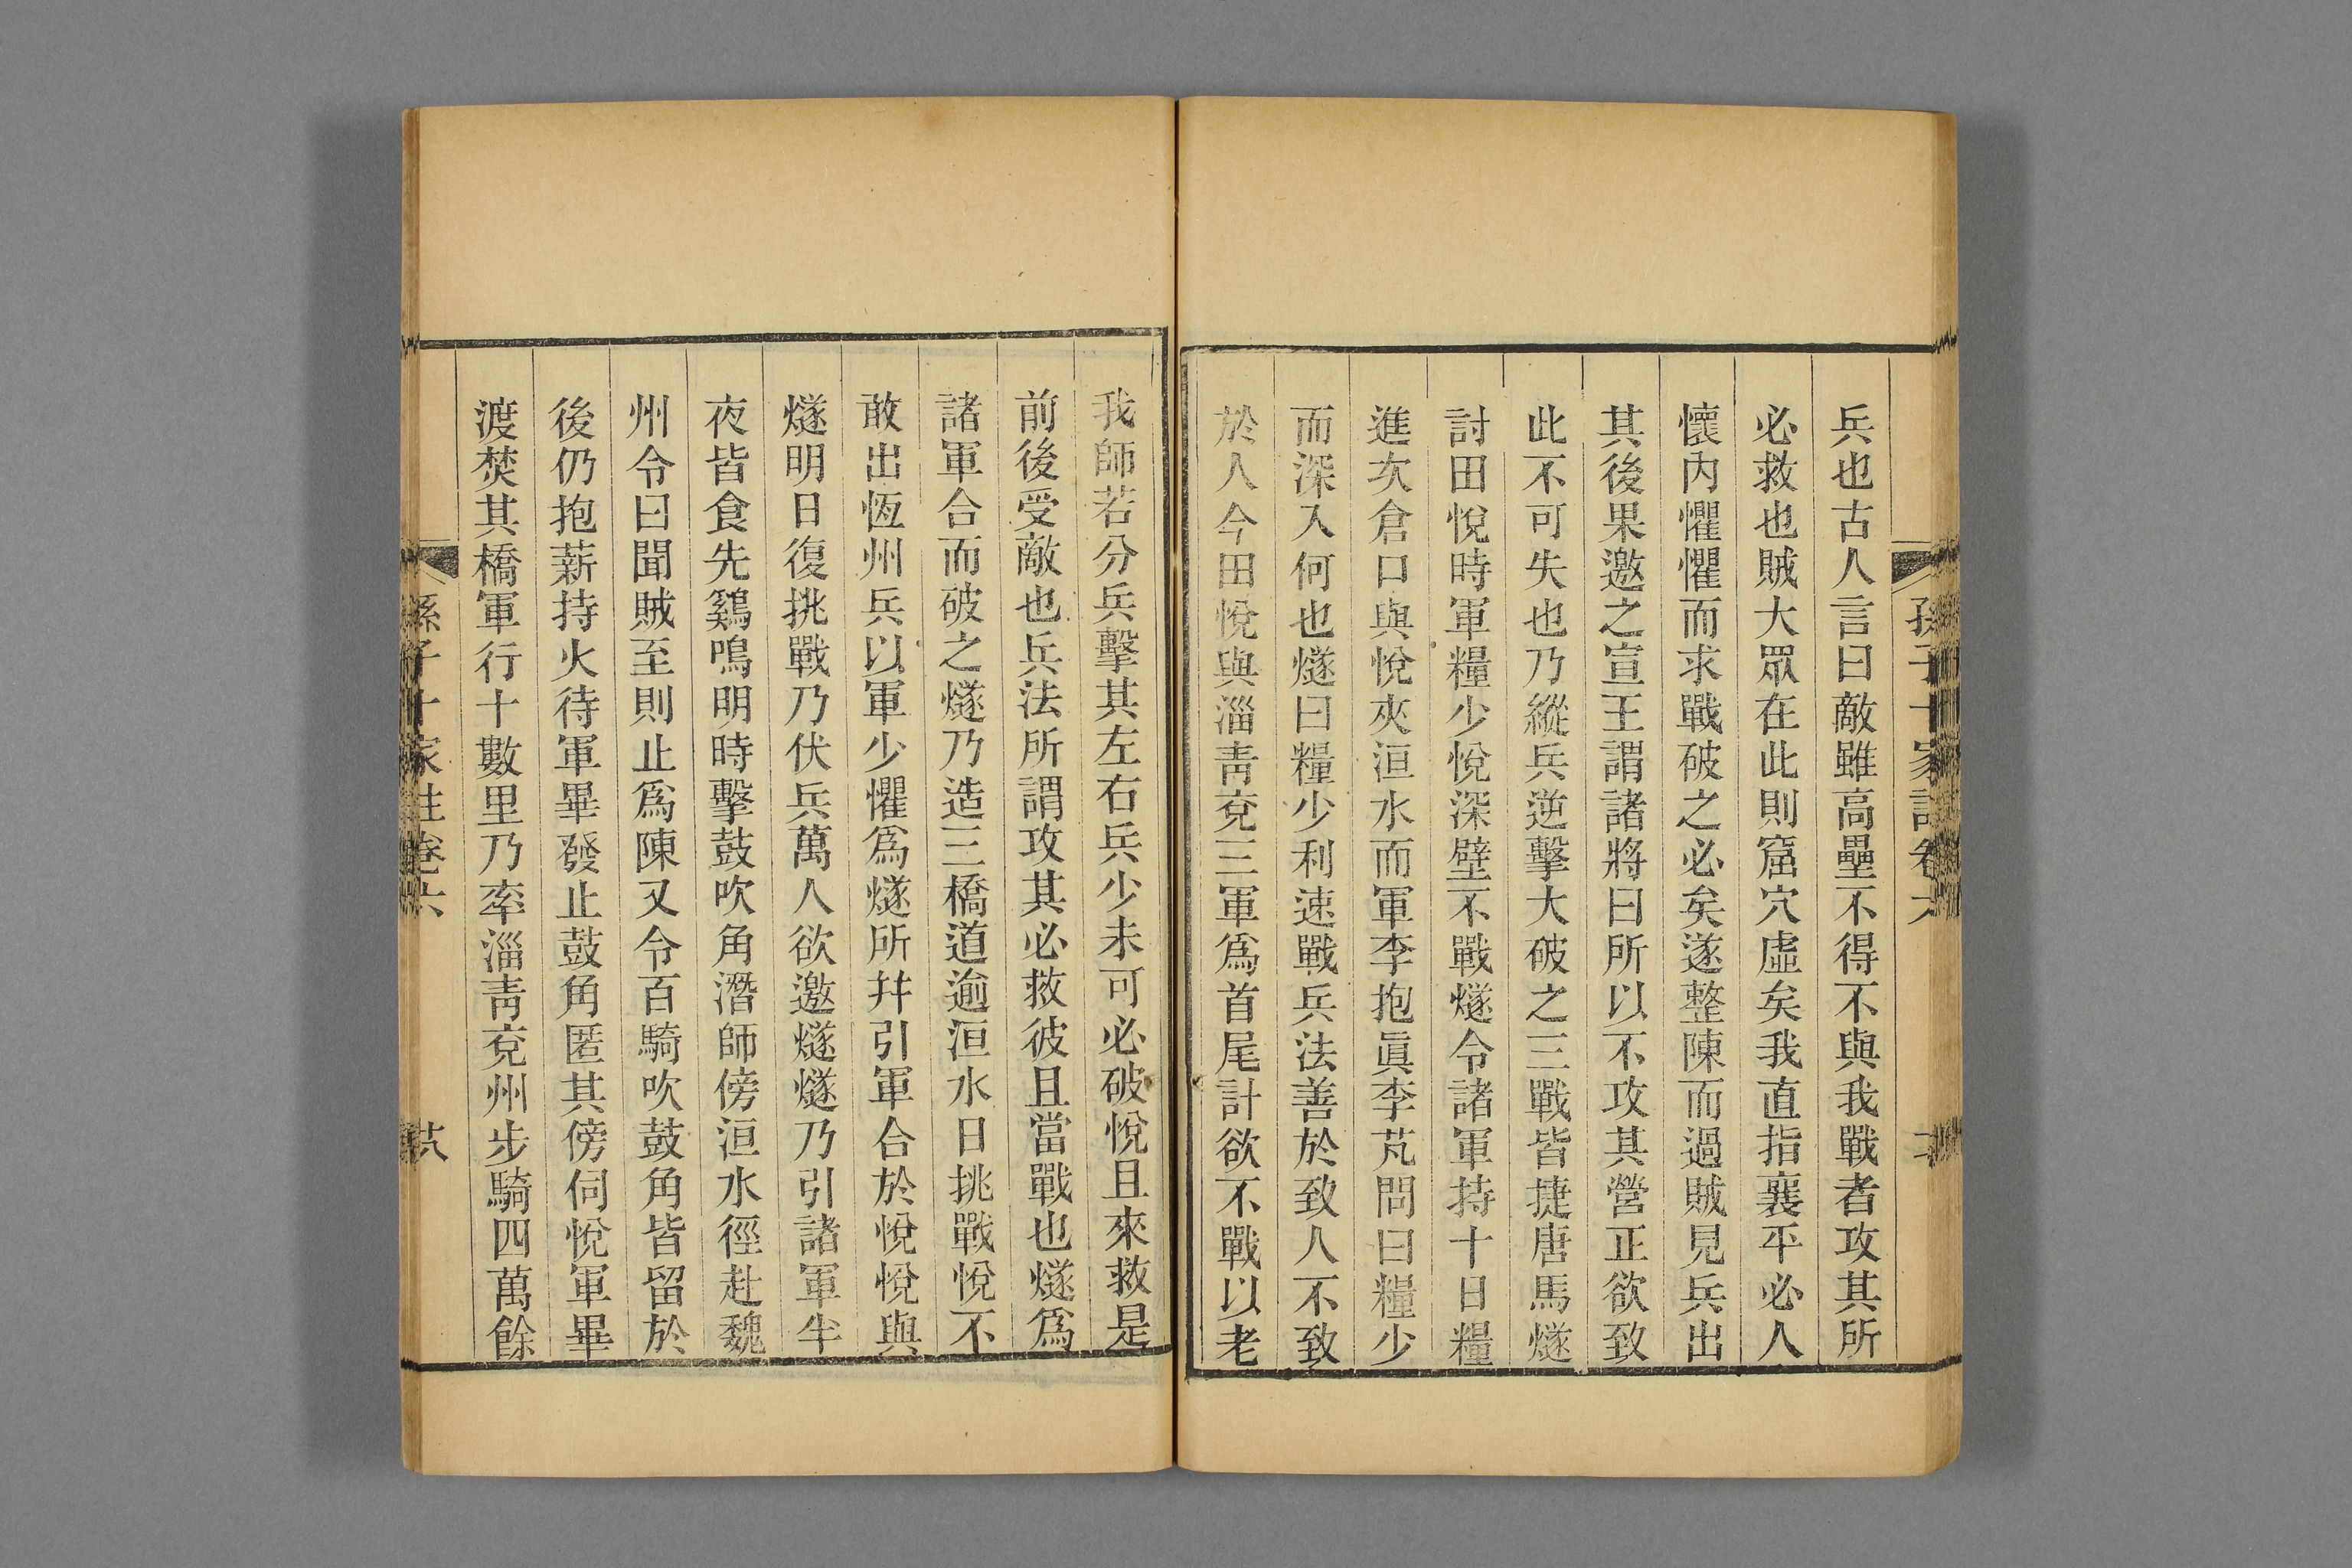 兵也古人言曰敵雖高壘不得不與我戰者攻其所
必救也賊大眾在此則窟穴虛矣我直指襄平必人
懷內懼懼而求戰破之必矣遂整陳而過賊見兵出
其後果邀之宣王謂諸將曰所以不攻其營正欲致
此不可失也乃縱兵逆擊大破之三戰皆捷唐馬燧
討田悅時軍糧少悅深壁不戰燧令諸軍持十日糧
進次倉口與悅夾洹水而軍李抱眞李芃問曰糧少
而深入何也燧曰糧少利速戰兵法善於致人不致
於人今田悅與淄靑兗三軍爲首尾計欲不戰以老
我師若分兵擊其左右兵少未可必破悅且來救是
前後受敵也兵法所謂攻其必救彼且當戰也燧爲
諸軍合而破之燧乃造三橋道逾洹水日挑戰悅不
敢出恆州兵以軍少懼爲燧所幷引軍合於悅悅與
燧明日復挑戰乃伏兵萬人欲邀燧燧乃引諸軍半
夜皆食先鷄鳴明時擊鼓吹角潛師傍洹水徑赴魏
州令曰聞賊至則止爲陳又令百騎吹鼓角皆留於
後仍抱薪持火待軍畢發止鼓角匿其傍伺悅軍畢
渡焚其橋軍行十數里乃率淄靑兗州步騎四萬餘
孫子十家註卷六